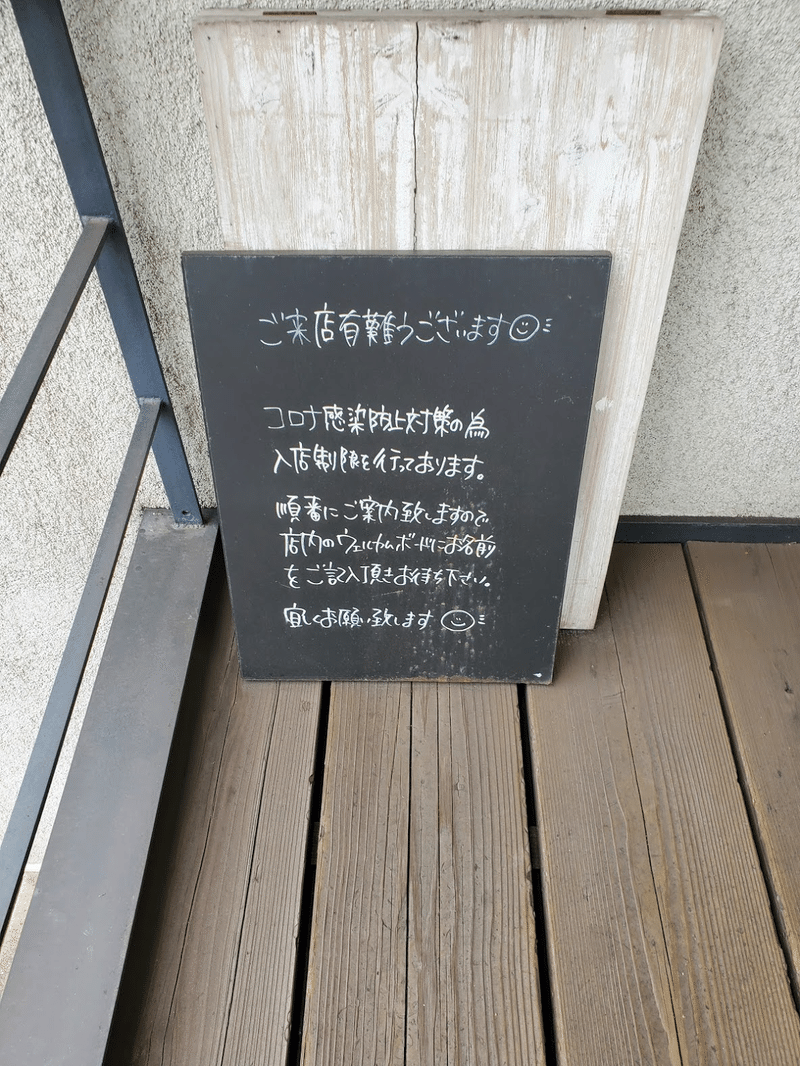 ご来店有難うございます
コロナ感染防止対策の為
入店制限を行っております。
順番にご案内致しますので
店内のウェルカムボードにお名前
をご記入頂きお待ち下さい。
宜しくお願い致します